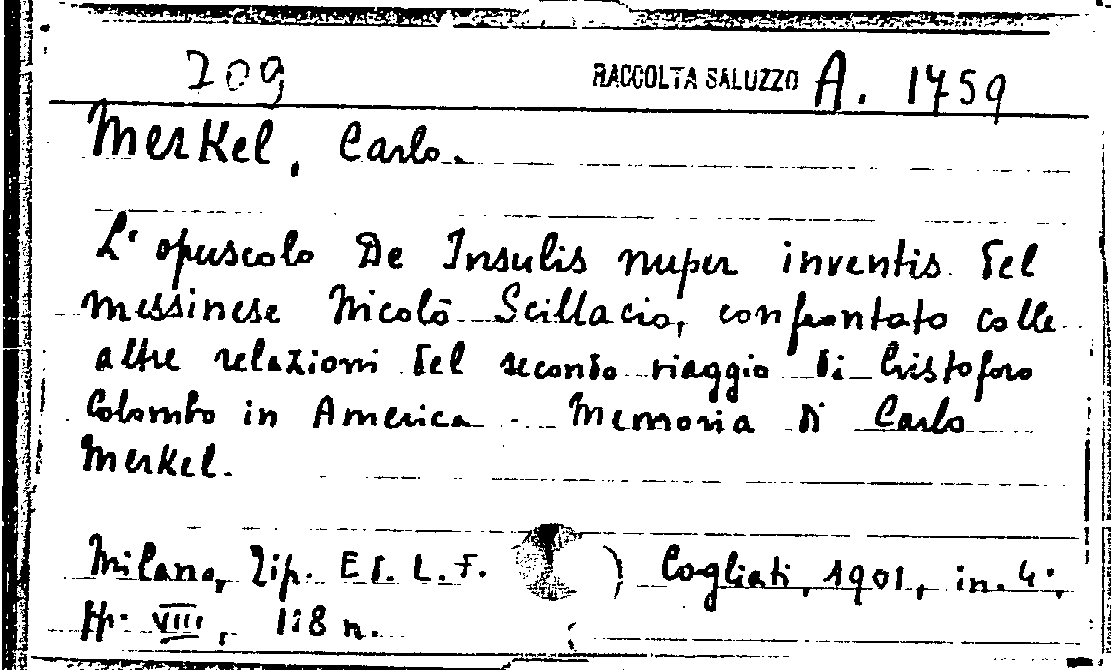 209 RACCOLTA SALUZZO A. 1759
Merkel, Carlo.
L'opuscolo De Insulis nuper inventis del
messinese Nicolò Scillacio, confrontato colle
altre relazioni del secondo viaggio di Cristoforo
Colombo in America. Memoria di Carlo
Merkel.
Milano, Tip. Ed. L. F. Cogliati, 1901, in-4°,
pp. VIII,